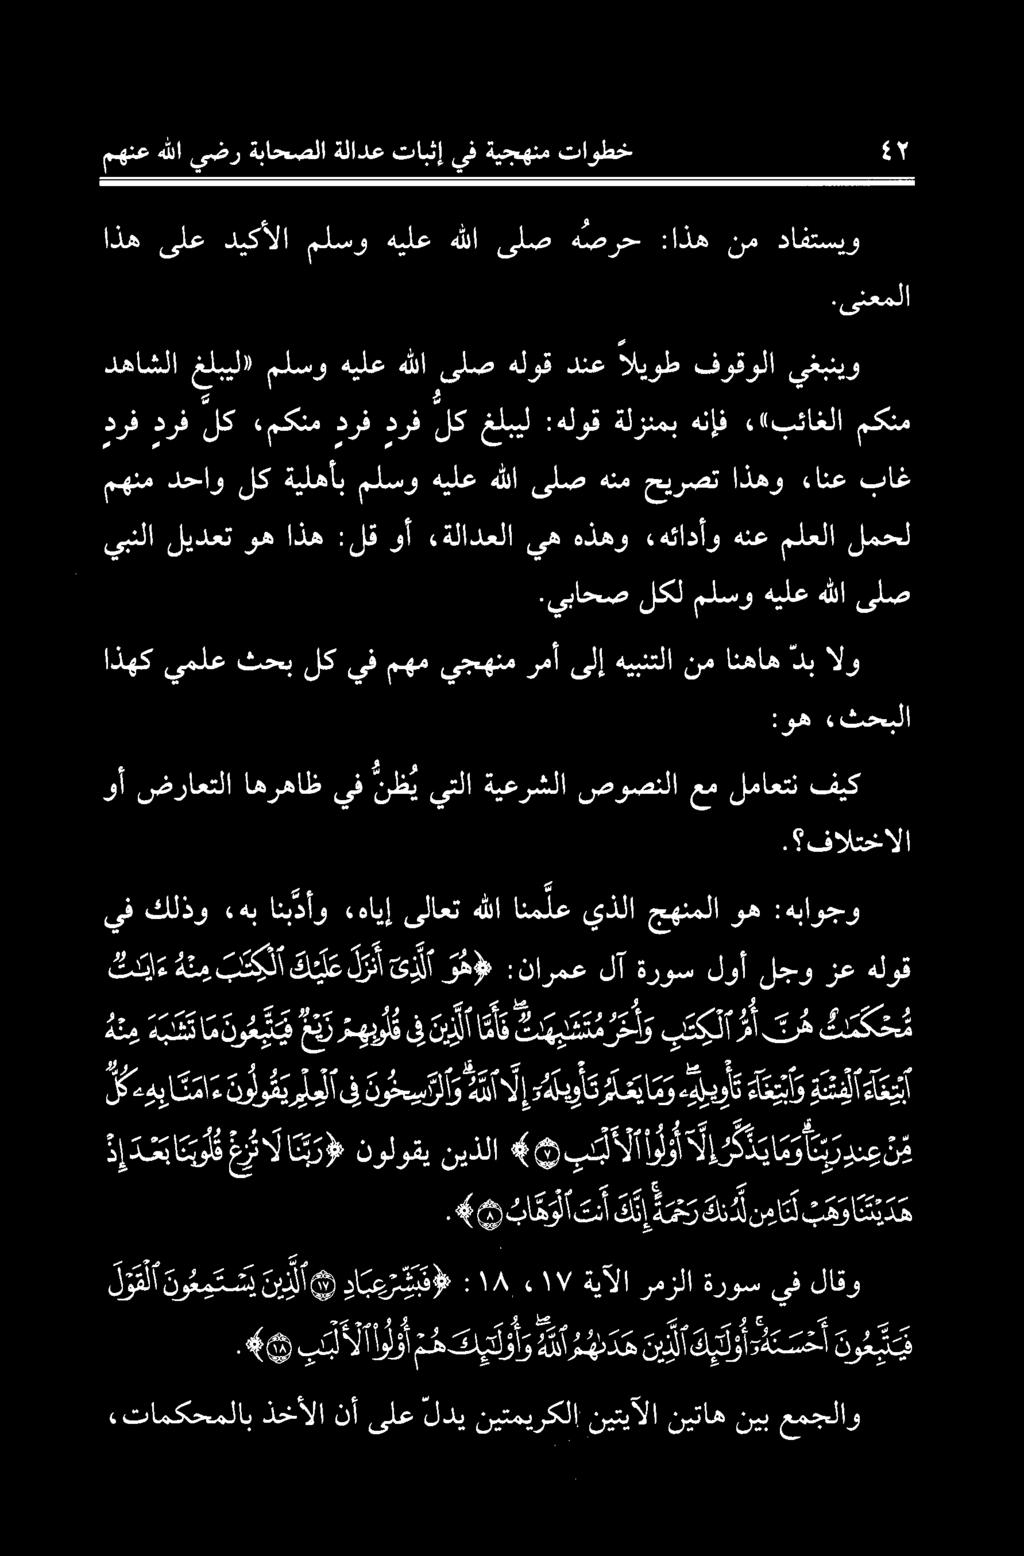 ٤٢ خطوات منهجية في إثبات عدالة الصحابة رضي الله عنهم
ويستفاد من هذا: حرصُه صلى الله عليه وسلم الأكيد على هذا
المعنى.
وينبغي الوقوف طويلاً عند قوله صلى الله عليه وسلم «ليبلغ الشاهد
منكم الغائب»، فإنه بمنزلة قوله: ليبلغ كلُّ فردٍ فردٍ منكم، كلَّ فردٍ فردٍ
غاب عنا، وهذا تصريح منه صلى الله عليه وسلم بأهلية كل واحد منهم
لحمل العلم عنه وأدائه، وهذه هي العدالة، أو قل: هذا هو تعديل النبي
صلى الله عليه وسلم لكل صحابي.
ولا بدّ هاهنا من التنبيه إلى أمر منهجي مهم في كل بحث علمي كهذا
البحث، وهو:
كيف نتعامل مع النصوص الشرعية التي يُظنُّ في ظاهرها التعارض أو
الاختلاف؟.
وجوابه: هو المنهج الذي علَّمنا الله تعالى إياه، وأدَّبنا به، وذلك في
قوله عز وجل أول سورة آل عمران: ﴿هُوَ ٱلَّذِىٓ أَنزَلَ عَلَيْكَ ٱلْكِتَٰبَ مِنْهُ ءَايَٰتٌ
مُّحْكَمَٰتٌ هُنَّ أُمُّ ٱلْكِتَٰبِ وَأُخَرُ مُتَشَٰبِهَٰتٌ ۖ فَأَمَّا ٱلَّذِينَ فِى قُلُوبِهِمْ زَيْغٌ فَيَتَّبِعُونَ مَا تَشَٰبَهَ مِنْهُ
ٱبْتِغَآءَ ٱلْفِتْنَةِ وَٱبْتِغَآءَ تَأْوِيلِهِۦ ۗ وَمَا يَعْلَمُ تَأْوِيلَهُۥٓ إِلَّا ٱللَّهُ ۗ وَٱلرَّٰسِخُونَ فِى ٱلْعِلْمِ يَقُولُونَ ءَامَنَّا بِهِۦ كُلٌّ
مِّنْ عِندِ رَبِّنَا ۗ وَمَا يَذَّكَّرُ إِلَّآ أُو۟لُوا۟ ٱلْأَلْبَٰبِ ٧﴾ الذين يقولون ﴿رَبَّنَا لَا تُزِغْ قُلُوبَنَا بَعْدَ إِذْ
هَدَيْتَنَا وَهَبْ لَنَا مِن لَّدُنكَ رَحْمَةً ۚ إِنَّكَ أَنتَ ٱلْوَهَّابُ ٨﴾.
وقال في سورة الزمر الآية ١٧، ١٨: ﴿فَبَشِّرْ عِبَادِ ١٧ ٱلَّذِينَ يَسْتَمِعُونَ ٱلْقَوْلَ
فَيَتَّبِعُونَ أَحْسَنَهُۥٓ ۚ أُو۟لَٰٓئِكَ ٱلَّذِينَ هَدَىٰهُمُ ٱللَّهُ ۖ وَأُو۟لَٰٓئِكَ هُمْ أُو۟لُوا۟ ٱلْأَلْبَٰبِ ١٨﴾.
والجمع بين هاتين الآيتين الكريمتين يدلّ على أن الأخذ بالمحكمات،